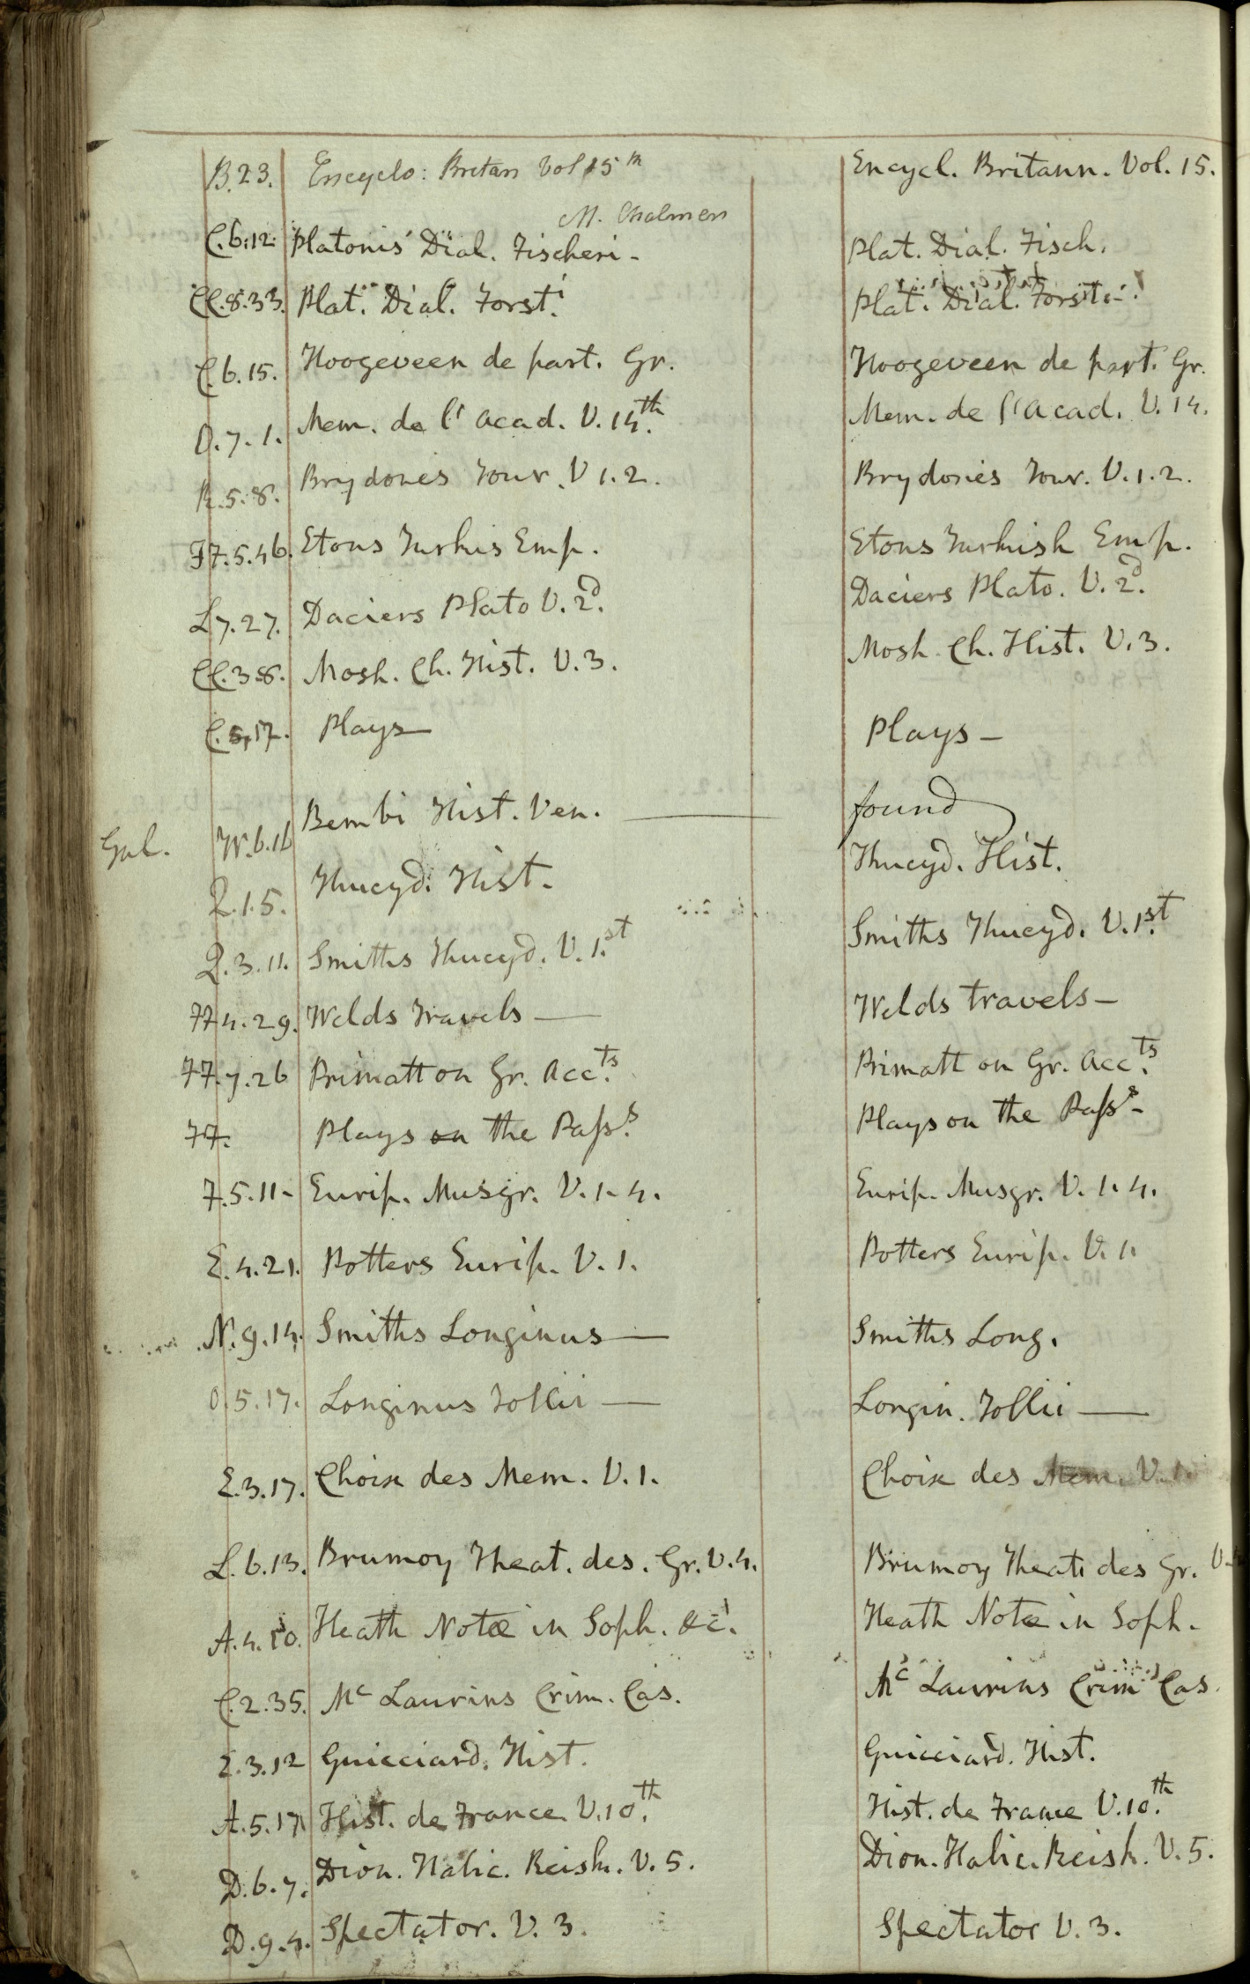 B.23. Encyclo: Britan Vol 15th Encycl. Britann. Vol. 15.
M. Chalmers
C.6.12. Platonis Dial. Fischeri - Plat. Dial. Fisch.
CC.8.33. Plat. Dial. Forst. Plat. Dial. Forst.
C.6.15. Hoogeveen de part. Gr. Hoogeveen de part. Gr.
D.7.1. Mem. de l'acad. V.14th. Mem. de l'acad. V.14.
R.5.8. Brydones Tour. V 1.2. Brydones Tour. V.1.2.
FF.5.46. Etons Turkis Emp. Etons Turkish Emp.
L7.27. Daciers Plato V.2d. Daciers Plato. V.2d.
CC.3.8. Mosh. Ch. Hist. V.3. Mosh. Ch. Hist. V.3.
C.5.17. Plays — Plays —
Gul. W.6.16 Bembi Hist. Ven. — found
Q.1.5. Thucyd. Hist. Thucyd. Hist.
Q.3.11. Smiths Thucyd. V.1.st Smiths Thucyd. V.1.st
FF4.29. Welds Travels — Welds travels —
FF.7.26 Primatt on Gr. Acc.ts Primatt on Gr. Acc.ts
FF. Plays on the Pass.s Plays on the Pass.s -
F.5.11- Eurip. Musgr. V.1-4. Eurip. Musgr. V.1.4.
E.4.21. Potters Eurip. V.1. Potters Eurip. V.1.
N.9.14. Smiths Longinus — Smiths Long.
O.5.17. Longinus Tollii — Longin. Tollii —
E.3.17. Choix des Mem. V.1. Choix des Mem. V.1.
L.6.13. Brumoy Theat. des. Gr. V.4. Brumoy Theat. des Gr.
A.4.10. Heath Notæ in Soph. &c. Heath Notæ in Soph.
C.2.35. Mc Laurins Crim. Cas. Mc Laurins Crim Cas.
E.3.12 Guicciard. Hist. Guicciard. Hist.
A.5.17 Hist. de France V.10.th Hist. de France V.10.th
D.6.7. Dion. Halic. Reisk. V.5. Dion. Halic. Reisk. V.5.
D.9.4. Spectator. V.3. Spectator V.3.